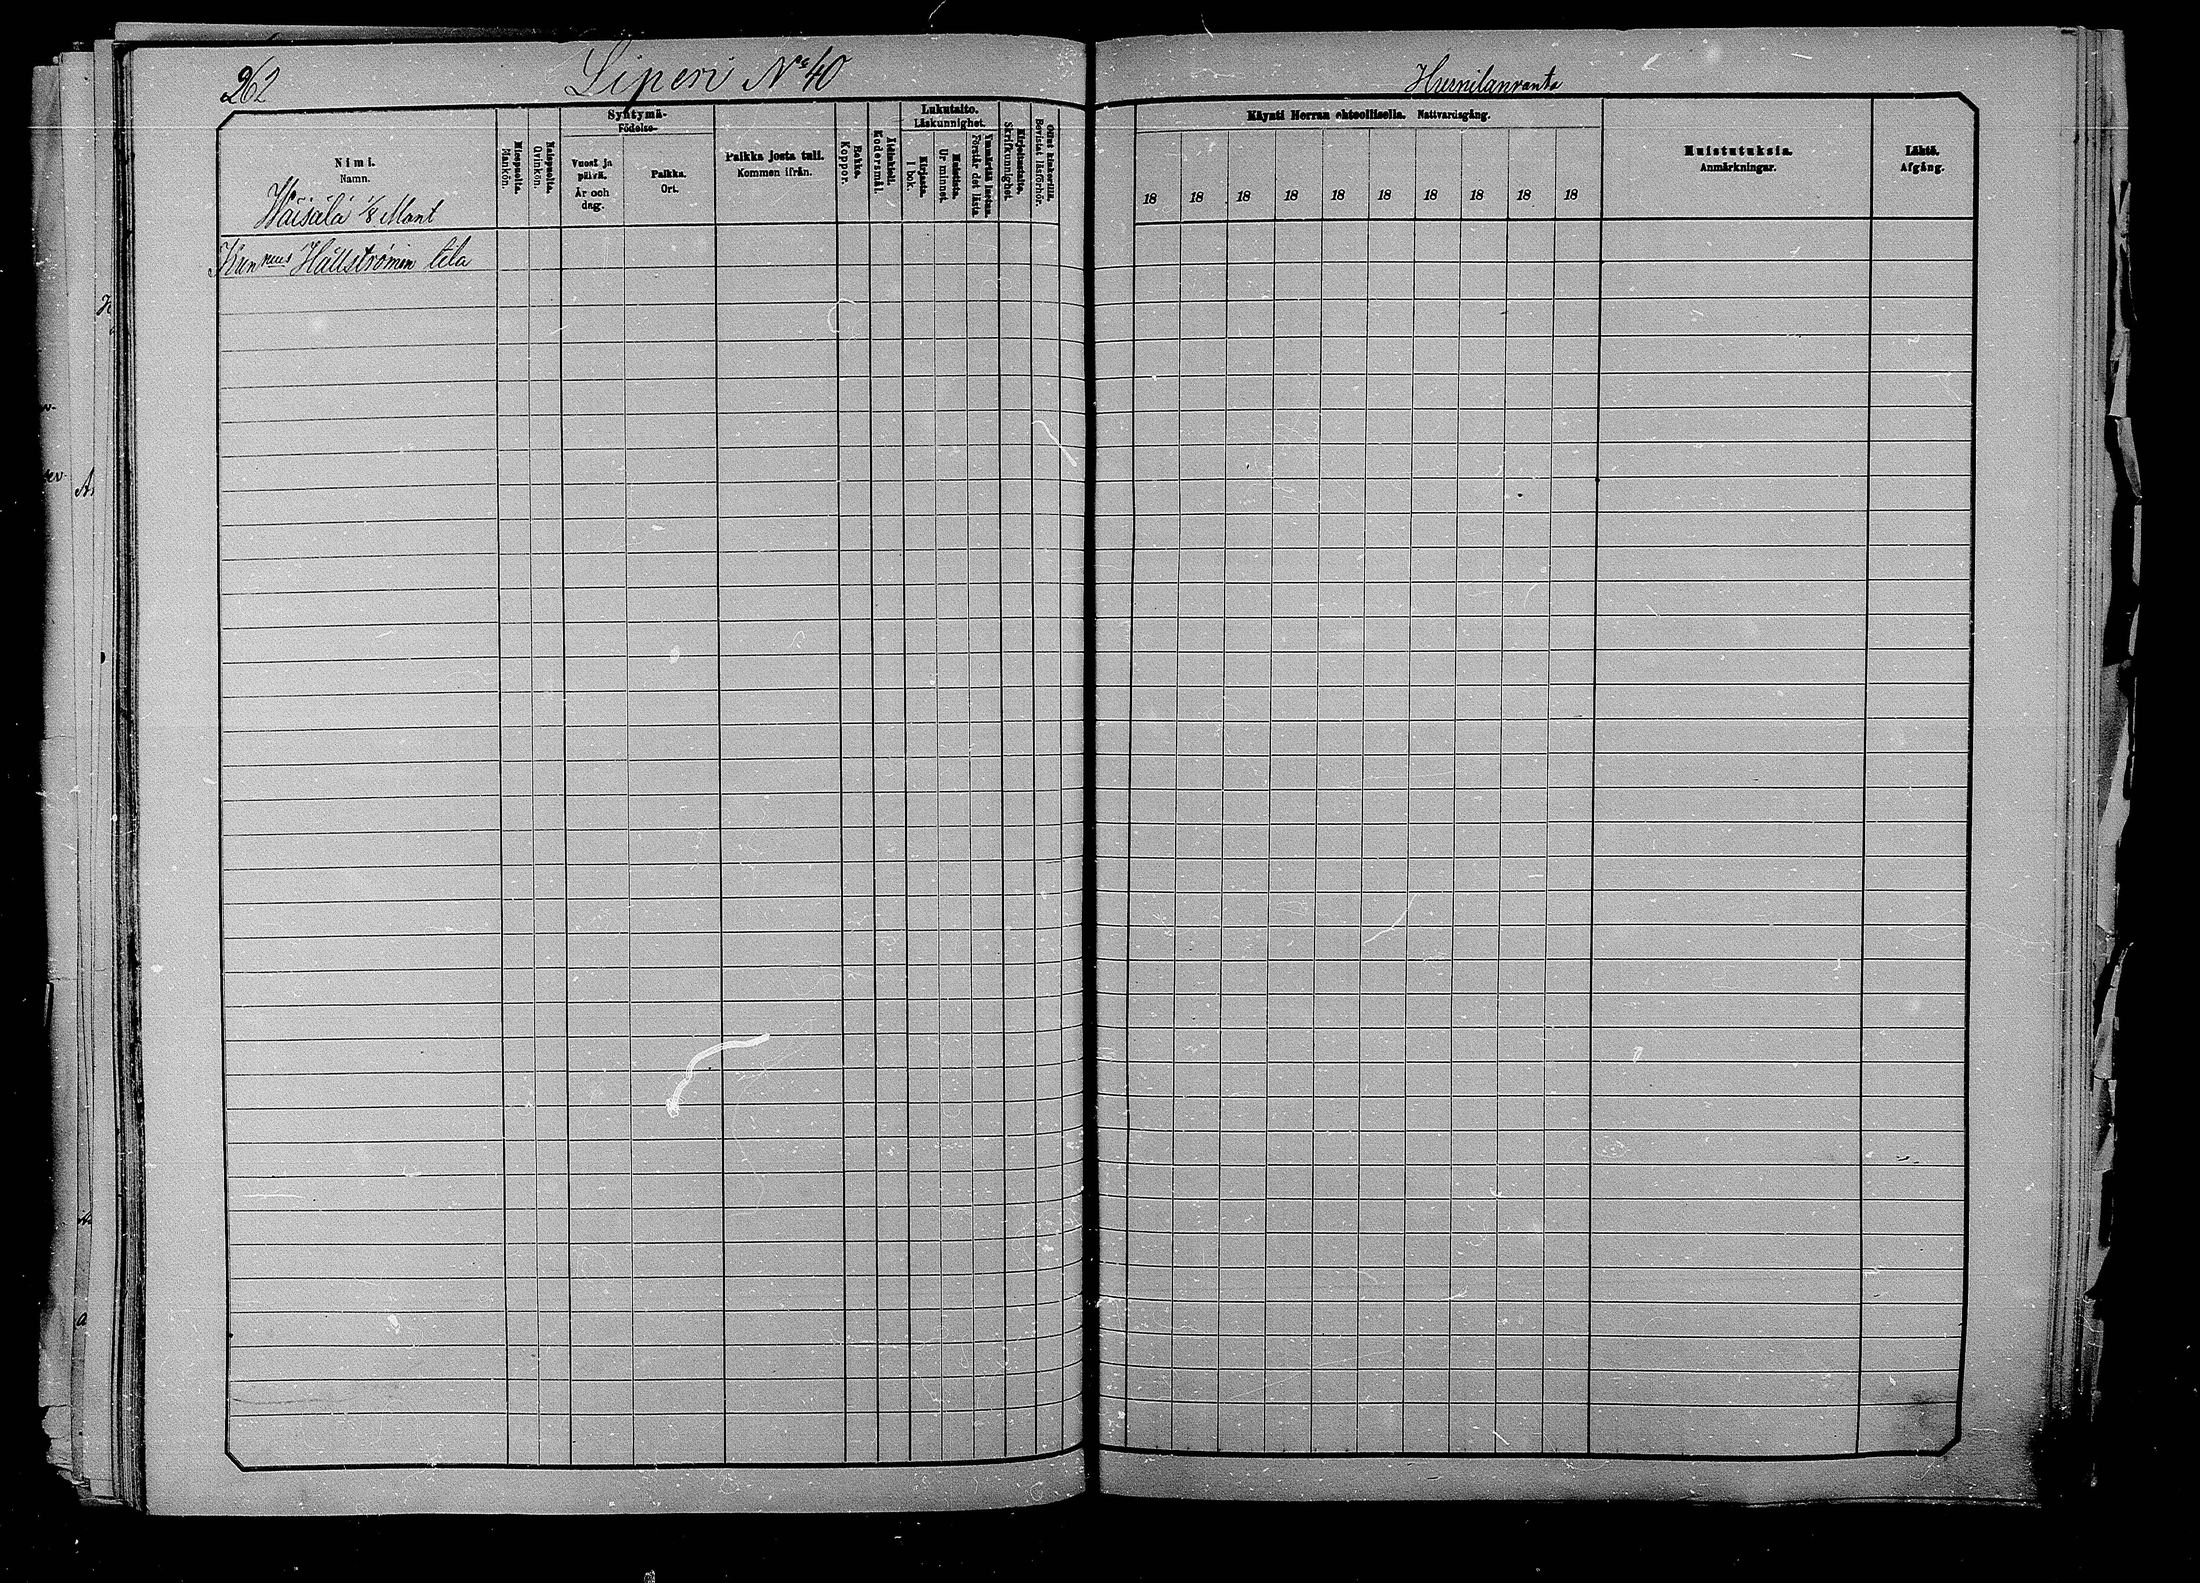 262
Liperi No 40
Nimi.
Namn.
Miespuolia.
Mankön.
Naispuolia.
Qvinkön.
Syntymä-
Födelse-
Vuosi ja
päivä.
År och
dag.
Paikka.
Ort.
Paikka josta tuli.
Kommen ifrån.
Rokko.
Koppor.
Kodersmål.
Lukutaito.
Läskunnighet.
Kirjasta.
I bok.
Muistista.
Ur minnet.
Ymmärtää lukunsa.
Förstår det lästa
Kirjoitustaito.
Skrifkunnighet.
Ollut kinkerillä.
Bevistat läsförhör.
Wäisälä 1/8 Mant
Hällströmin tila
Hernilanranta
Käynti Herran ehtoollisella. Nattvardsgång.
18 18 18 18 18 18 18 18 18 18
Muistutuksia.
Anmärkningar.
Lähtö.
Afgång.